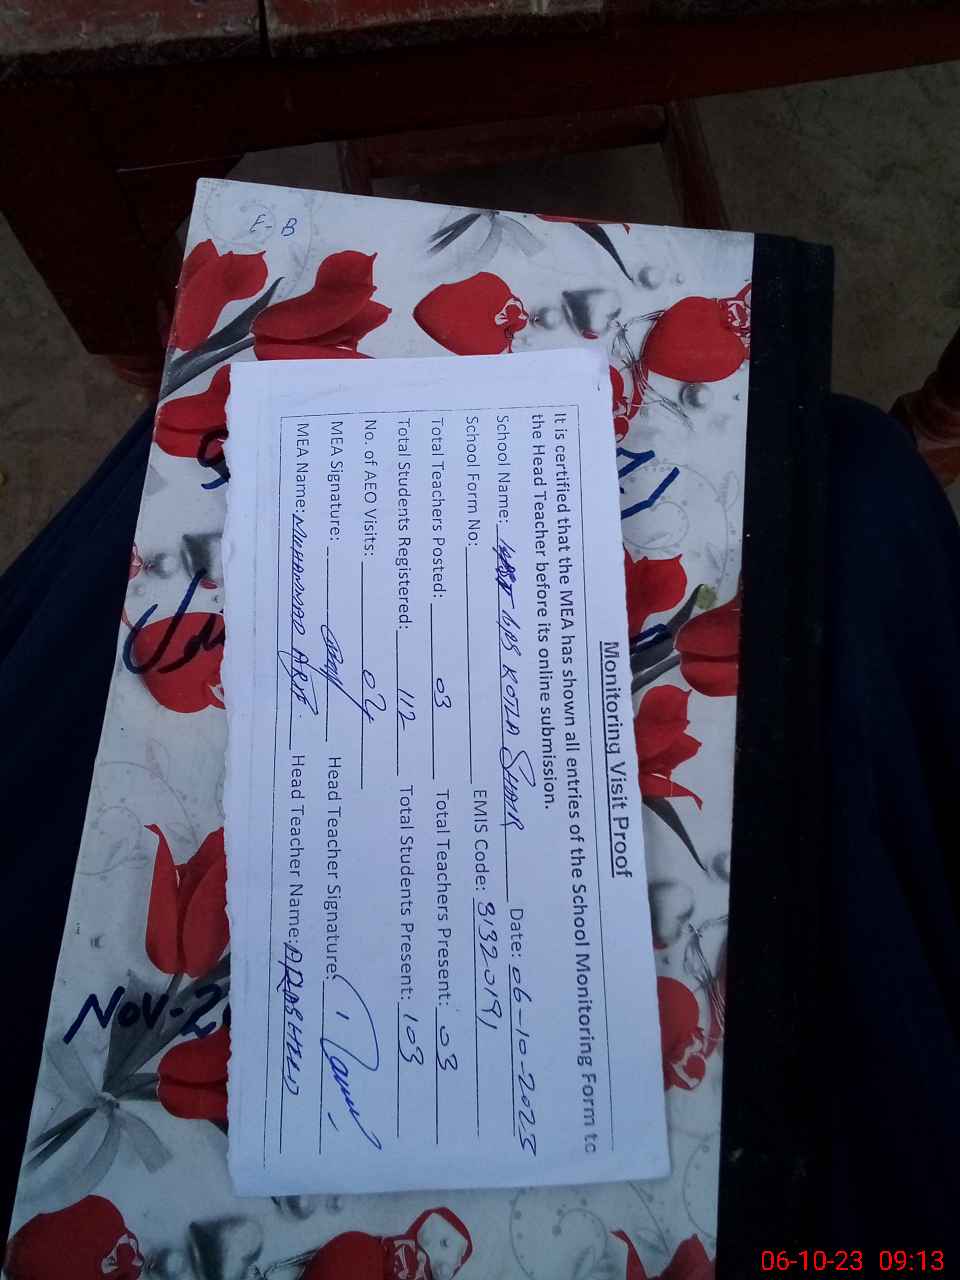 E-B
Monitoring Visit Proof
It is certified that the MEA has shown all entries of the School Monitoring Form to
the Head Teacher before its online submission.
School Name: GPS KOTLA SHAIR Date: 06-10-2023
School Form No: EMIS Code: 31320191
Total Teachers Posted: 03 Total Teachers Present: 03
Total Students Registered: 112 Total Students Present: 103
No. of AEO Visits: 04
MEA Signature: Head Teacher Signature:
MEA Name: MUHAMMAD ARIF Head Teacher Name: A RASHEED
Nov-2
06-10-23 09:13